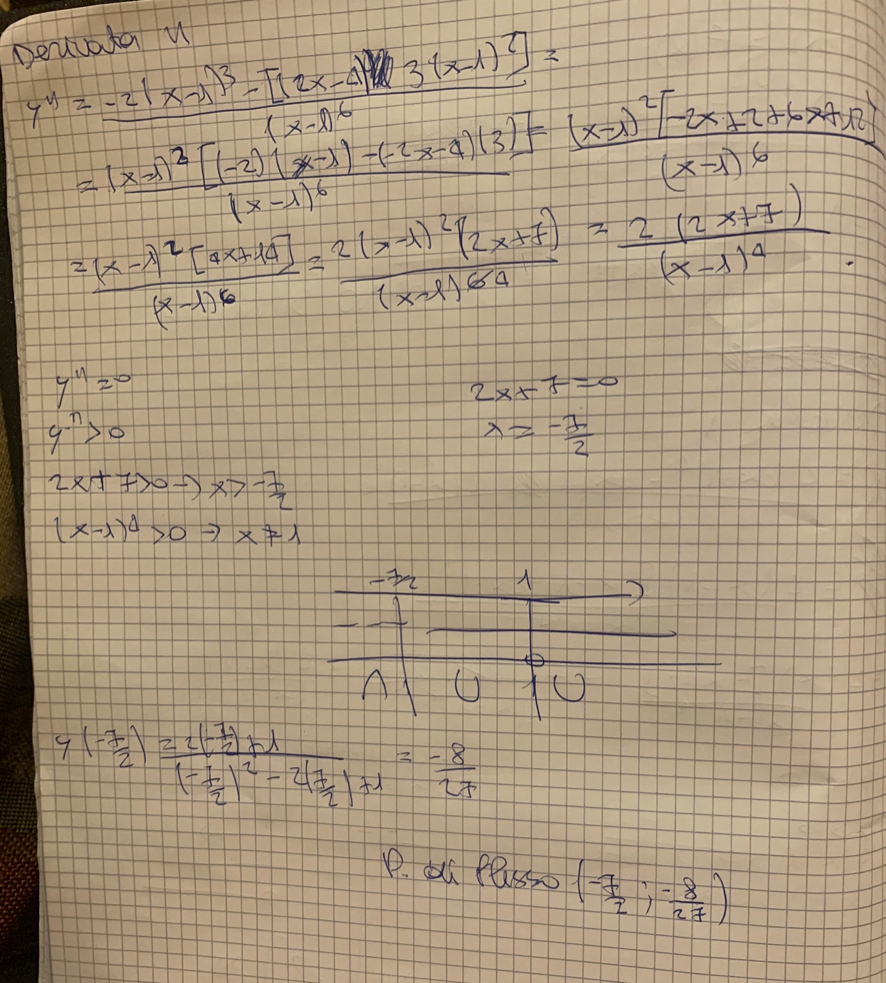 Derivata II
y" = -2(x-1)^3 - [(2x-4) 3(x-1)^2] / (x-1)^6 =
= (x-1)^2 [(-2)(x-1) - (-2x-4)(3)] / (x-1)^6 = (x-1)^2 [-2x+2+6x+12] / (x-1)^6
= (x-1)^2 [4x+14] / (x-1)^6 = 2(x-1)^2 (2x+7) / (x-1)^6 4 = 2 (2x+7) / (x-1)^4 .
y" = 0 2x+7=0
y" > 0 x = -7/2
2x+7>0 → x > -7/2
(x-1)^4 > 0 → x ≠ 1
-7/2 1
∩ ∪ ∪
y(-7/2) = 2(-7/2)+1 / (-7/2)^2 - 2(-7/2)+1 = -8/27
P. di flesso (-7/2 ; -8/27)